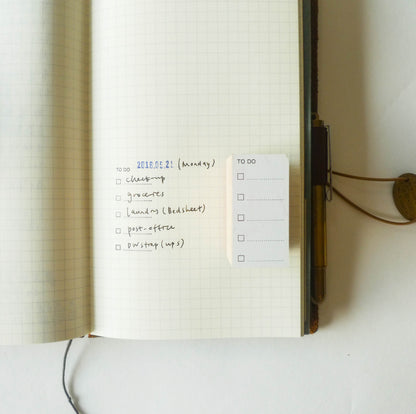 2018.05.21 (Monday)
TO DO
check-up
groceries
laundry (Bedsheet)
post-office
pw strap (ups)
TO DO